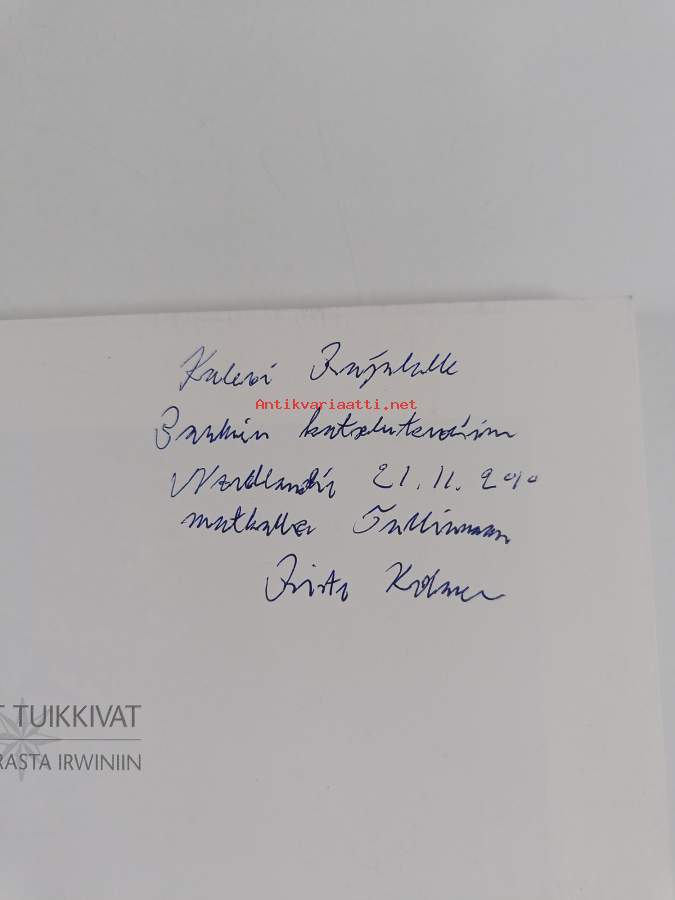 Kalevi Rajalalle
Antikvariaatti.net
Parhain katseluterveisin
Nordlandia 21.11.2010
matkalla Tallinnaan
Risto
T TUIKKIVAT
RASTA IRWINIIN